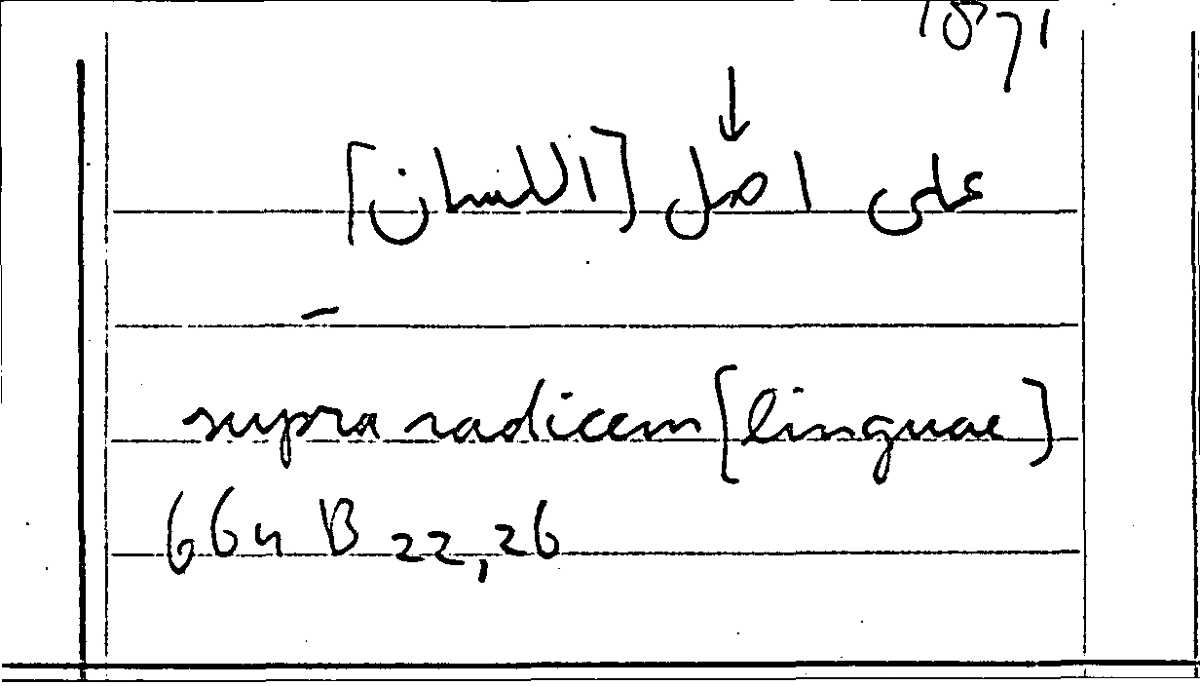 1871
على اصل [اللسان]
supra radicem [linguae]
664 B 22,26